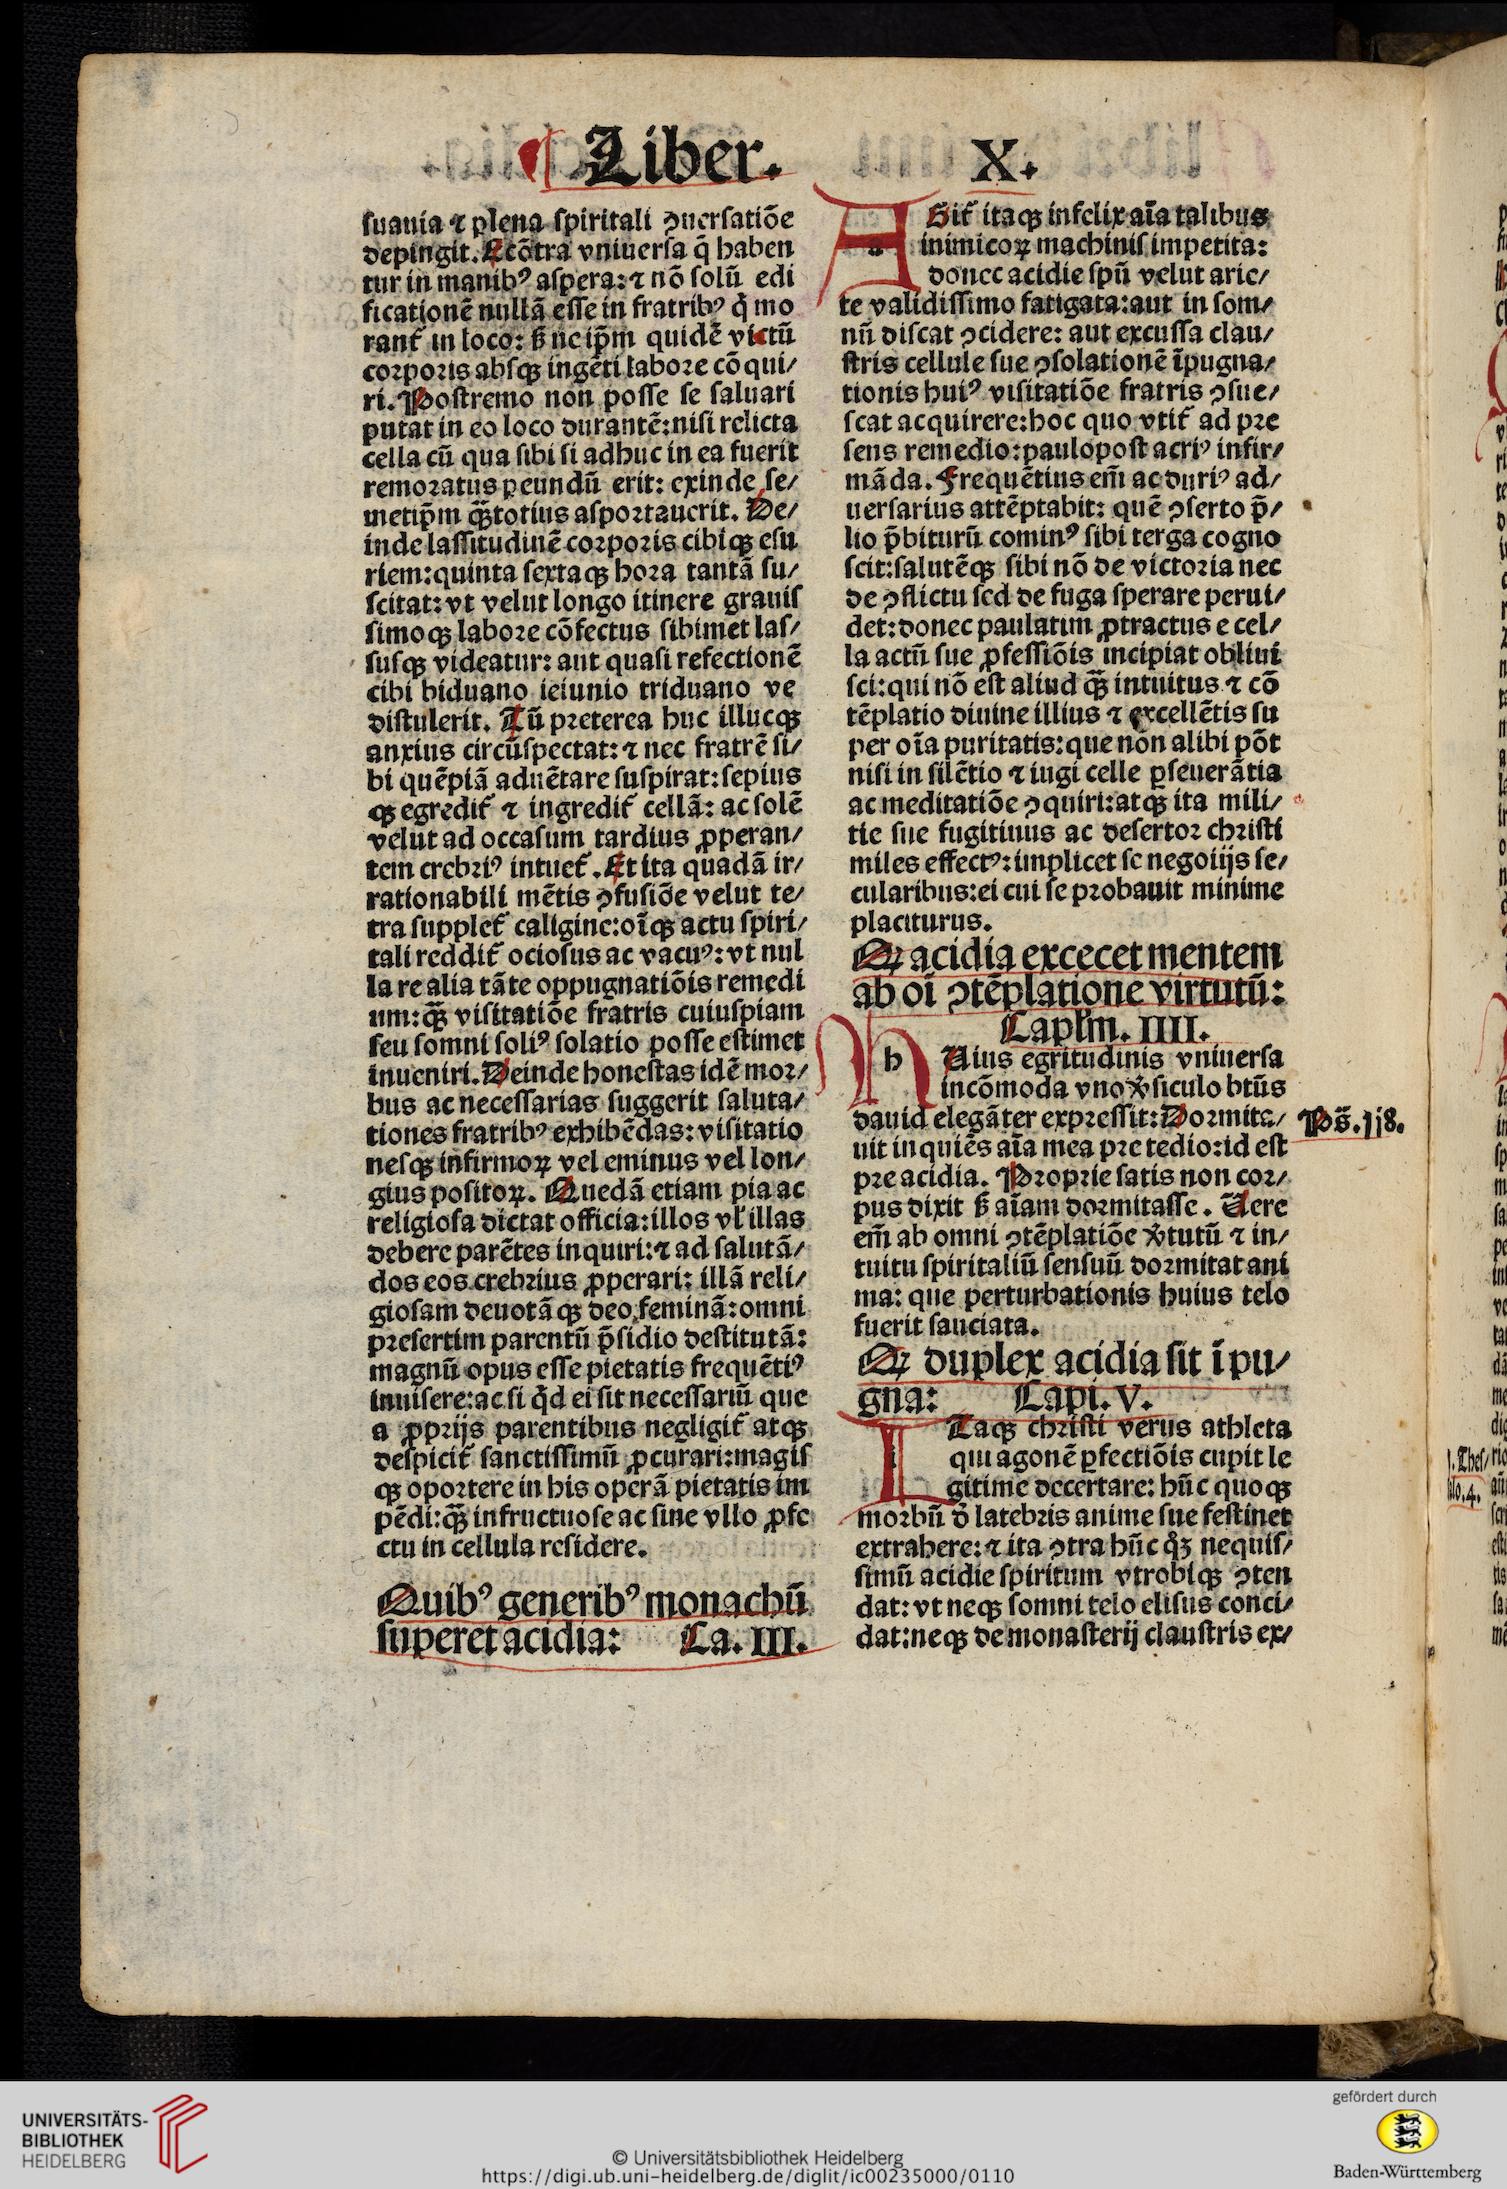 Liber. X.
suauia ⁊ plena spiritali ꝯuersatiõe
depingit. Ecõtra vniuersa q̃ haben
tur in manibꝰ aspera: ⁊ nõ solũ edi
ficationẽ nullã esse in fratribꝰ q̇ mo
rant᷑ in loco: ß nc ip̃m quidẽ victũ
corporis absqꝫ ingẽti labore cõqui⸗
ri. Postremo non posse se saluari
putat in eo loco durantẽ: nisi relicta
cella cũ qua sibi si adhuc in ea fuerit
remoratus ꝑeundũ erit: exinde se⸗
metip̃m qꝫ̃totius asportauerit. De⸗
inde lassitudinẽ corporis cibiqꝫ esu
riem: quinta sextaqꝫ hora tantã su⸗
scitat: vt velut longo itinere grauis
simoqꝫ labore cõfectus sibimet las⸗
susqꝫ videatur: aut quasi refectionẽ
cibi biduano ieiunio triduano ve
distulerit. Tũ preterea huc illucqꝫ
anxius circũspectat: ⁊ nec fratrẽ si⸗
bi quẽpiã aduẽtare suspirat: sepius
qꝫ egredit᷑ ⁊ ingredit᷑ cellã: ac solẽ
velut ad occasum tardius ꝓperan⸗
tem crebriꝰ intuet᷑. Et ita quadã ir⸗
rationabili mẽtis ꝯfusiõe velut te⸗
tra supplet᷑ caligine: oĩqꝫ actu spiri⸗
tali reddit᷑ ociosus ac vacuꝰ: vt nul
la re alia tãte oppugnatiõis remedi
um: qꝫ̃ visitatiõe fratris cuiuspiam
seu somni soliꝰ solatio posse estimet
inueniri. Deinde honestas idẽ mor⸗
bus ac necessarias suggerit saluta⸗
tiones fratribꝰ exhibẽdas: visitatio
nesqꝫ infirmoꝝ vel eminus vel lon⸗
gius positoꝝ. Quedã etiam pia ac
religiosa dictat officia: illos vľ illas
debere parẽtes inquiri: ⁊ ad salutã⸗
dos eos crebrius ꝓperari: illã reli⸗
giosam deuotãqꝫ deo feminã: omni
presertim parentũ p̃sidio destitutã:
magnũ opus esse pietatis frequẽtiꝰ
inuisere: ac si q̇d ei sit necessariũ que
a ꝓprijs parentibus negligit᷑ atqꝫ
despicit᷑ sanctissimũ ꝓcurari: magis
qꝫ oportere in his operã pietatis im
pẽdi: qꝫ̃ infructuose ac sine vllo ꝓfe
ctu in cellula residere.
Quibꝰ generibꝰ monachũ
superet acidia: Ca. III.
a
ASit᷑ itaqꝫ infelix aĩa talibus
inimicoꝝ machinis impetita:
donec acidie spũ velut arie⸗
te validissimo fatigata: aut in som⸗
nũ discat ꝯcidere: aut excussa clau⸗
stris cellule sue ꝯsolationẽ ĩpugna⸗
tionis huiꝰ visitatiõe fratris ꝯsue⸗
scat acquirere: hoc quo vtit᷑ ad pre
sens remedio: paulopost acriꝰ infir⸗
mãda. Frequẽtius em̃ ac duriꝰ ad⸗
uersarius attẽptabit: quẽ ꝯserto p̃⸗
lio p̃biturũ cominꝰ sibi terga cogno
scit: salutẽqꝫ sibi nõ de victoria nec
de ꝯflictu sed de fuga sperare perui⸗
det: donec paulatim ꝓtractus e cel⸗
la actũ sue ꝓfessiõis incipiat obliui
sci: qui nõ est aliud qꝫ̃ intuitus ⁊ cõ
tẽplatio diuine illius ⁊ excellẽtis su
per oĩa puritatis: que non alibi põt
nisi in silẽtio ⁊ iugi celle ꝑseuerãtia
ac meditatiõe ꝯquiri: atqꝫ ita mili⸗
tie sue fugitiuus ac desertor christi
miles effectꝰ: implicet se negoiijs se⸗
cularibus: ei cui se probauit minime
placiturus.
Qꝫ acidia excecet mentem
ab oĩ ꝯtẽplatione virtutũ:
Caplm̃. IIII.
h
HUius egritudinis vniuersa
incõmoda vno v̾siculo btũs
dauid elegãter expressit: Dormita⸗
uit inquiẽs aĩa mea pre tedio: id est
pre acidia. Proprie satis non cor⸗
pus dixit ß aĩam dormitasse. Uere
em̃ ab omni ꝯtẽplatiõe v̾tutũ ⁊ in⸗
tuitu spiritaliũ sensuũ dormitat ani
ma: que perturbationis huius telo
fuerit sauciata.
Ps̃. jj8.
Qꝫ duplex acidia sit ĩpu⸗
gna: Capi. V.
i
ITaqꝫ christi verus athleta
qui agonẽ ꝑfectiõis cupit le
gitime decertare: hũc quoqꝫ
morbũ d̾ latebris anime sue festinet
extrahere: ⁊ ita ꝯtra hũc q̃ꝫ nequis⸗
simũ acidie spiritum vtrobiqꝫ ꝯten
dat: vt neqꝫ somni telo elisus conci⸗
dat: neqꝫ de monasterij claustris ex⸗
j. Thes⸗
lo. 4.
UNIVERSITÄTS-
BIBLIOTHEK
HEIDELBERG
© Universitätsbibliothek Heidelberg
https://digi.ub.uni-heidelberg.de/diglit/ic00235000/0110
gefördert durch
Baden-Württemberg